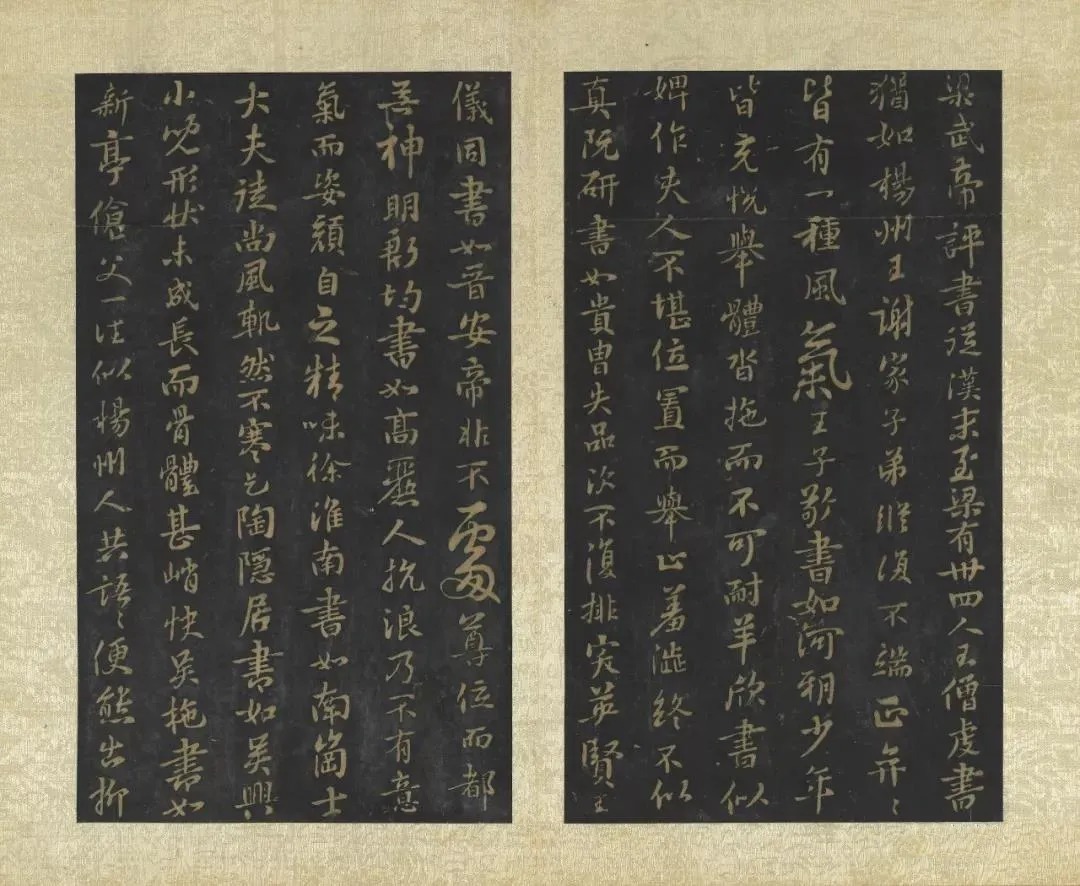 梁武帝評書從漢末至梁有卅四人王僧虔書
猶如楊州王謝家子弟縱復不端正奕〻
皆有一種風氣王子敬書如河朔少年
皆充悅舉體沓拖而不可耐羊欣書似
婢作夫人不堪位置而舉止羞澁終不似
真阮研書如貴胄失品次不復排突英賢王
儀同書如晉安帝非不處尊位而都
無神明郗均書如高麗人抗浪乃不有意
氣而姿顏自之精味徐淮南書如南崗士
大夫徒尚風軌然不寒乞陶隱居書如吳興
小兒形狀未成長而骨體甚峭快吳拖書如
新亭傖父一往似楊州人共語〻便態出柳